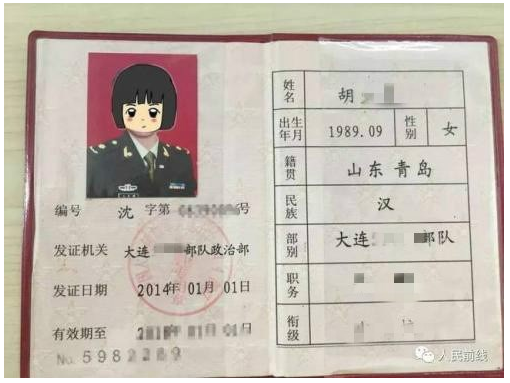 编号 沈 字第 号
发证机关 大连 部队政治部
发证日期 2014年01月01日
有效期至 01月01日
No. 5982289
姓名 胡
出生年月 1989.09 性别 女
籍贯 山东 青岛
民族 汉
部别 大连 部队
职务
衔级
人民前线